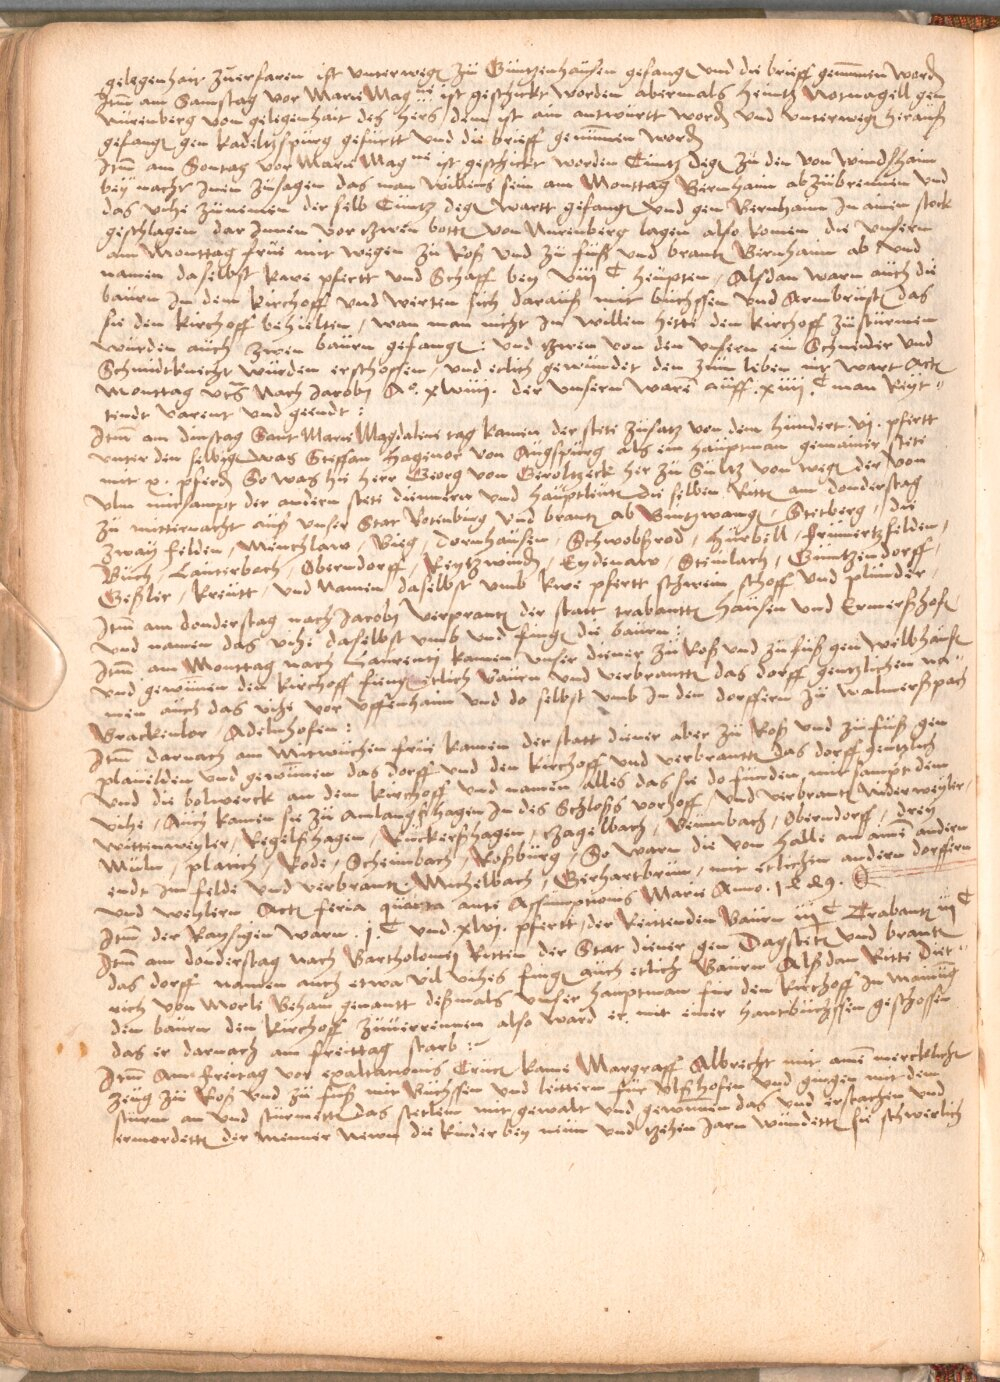 gelegenhait zuerfaren ist vnterwegs zu Guntzenhausen gefangen vnd die brieff genummen worden
Item am Samstag vor Marie Mag ne ist geschickt worden abermals heintz Notnagell gen
Nurenberg von gelegenhait des hers dem ist ain antwurtt worden vnd vnterwegs herauß
gefangen gen kadeltzspurg gefurtt vnd die brieff genummen worden
Item am Sontag vor Marie Mag ne ist geschickt worden Cuntz deg zu den von Windßhaim
bey nacht Inen zusagen das man willens sein am Monttag Bernhaim abzubrennen vnd
das vihe zunemen der selb Cuntz deg wartt gefangen vnd gen Bernhaim In ainen stock
geschlagen dar Innen vor zwen botten von Nurenberg lagen also komen die vnsern
am Monttag frue mit wegen zu Roß vnd zu fuß vnd branten Bernhaim ab vnd
namen daselbst kwe pfertt vnd Schaff bey viii C heupten, Alßdan warn auch die
baurn In dem kirchoff vnd werten sich darauß mit buchssen vnd Armbrusten das
sie den kirchoff behielten, wan man nicht In willen hette den kirchoff zusturmen
wurden auch zwen baurn gefangen: vnd zwen von den vnsern ein Schneider vnd
Schmidtknecht wurden erschossen, vnd etlich gewundet den zum leben nit wart Actum
Monttag vts Nach Jacobj Ao. xlviiij. der vnsern waren auff .xiiii. C man Reyt-
tendt varent vnd geendt:
Item am dinstag Sant Marie Magdalene tag kamen der stete zusatz von dem hundert .vi. pfertt
vnter den selbigen was Steffan Hagenor von Augspurg als ein hauptman gemainer stete
mit x. pferden So was hie herr Georg von Geroltzeck her zu Sultz von wegen der von
vlm mitsampt der andern stete diennern vnd hauptleuten die selben Ritten am donderstag
zu mitternacht auß vnser Stat Rotenburg vnd branten ab Bintzwangen, Stetberg, die
zway felden, Munchlaw, Bieg, Dornhausen, Schwobßrod, Hurbell, Frumertzfelden,
Buch, Lauterbach, Oberndorff, Reytzwinden, Eydenaw, Steinlach, Guntzendorff,
Geßler, Kreutt, vnd Namen daselbst vmb kwe pfertt schwein schoff vnd plunder,
Item am donderstag nach Jacobj verpranten der statt trabantten Hausen vnd Ermerßhofen
vnd namen das vihe daselbst vmb vnd fingen die baurn:
Item am Monttag nach Laurentj kamen vnser diener zu Roß vnd zu fuß gen Welbhausen
vnd gewunnen den kirchoff fiengen etlich baurn vnd verbrantten das dorff gentzlichen na-
men auch das vihe vor vffenhaim vnd do selbst vmb In den dorffern zu Walmerßpach
Brackenlor, Adelnhofen:
Item darnach am Mitwuchen frue kamen der statt diener aber zu Roß vnd zu fuß gen
plauelden vnd gewunnen das dorff vnd den kirchoff vnd verbrantten das dorff gentzlich
vnd die bolwerck an dem kirchoff vnd namen alles das sie do funden mitsampt dem
vihe, Auch kamen sie zu Amlangßhagen In des Schloß vorhoff, vnd verbranten Niderweyler,
Wittenweyler, Regelßhagen, Ruckerßhagen, Zagelbach, Beimbach, Oberndorff, drey
Muln, platich, Rode, Scheinbach, Roßburg, So warn die von Halle an einem andern
endt Im felde vnd verbranten Michelbach, Gerhartbrun, mit etlichen andern dorffern
vnd weylern Actum feria quarta ante Assumptionis Marie Anno .1449.
Item der Raysigen warn .j. C vnd .xlvi. pfertt, der Reittenden Baurn iii C Trabanten iij C
Item am donderstag nach Bartholomej Ritten der Stat diener gen Dagstetten vnd branten
das dorff namen auch etwa vil vihes fingen auch etlich Baurn Alßdan Ritte Diet-
rich von Morle Beham genantt deßmals vnser hauptman fur den kirchoff In mainung
den baurn den kirchoff zuuerrennen also ward er mit einer hantbuchssen geschossen
das er darnach am freittag starb:
Item Am freitag vor exaltationis Crucis kame Margraff Albrecht mit einem mercklichen
zeug zu Roß vnd zu fuß mit Buchssen vnd leittern fur vlßhofen vnd gingen mit dem
sturm an vnd sturmetten das stetlein mit gewalt vnd gewunnen das vnd erstachen vnd
ermordetten der menner Newn die kinder bey neun vnd zehen Jarn wundetten sie schwerlich